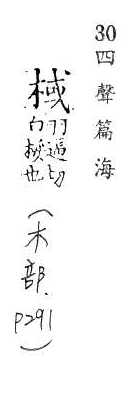 30 四聲篇海
棫 羽逼切
白桵也
(木部. P291)